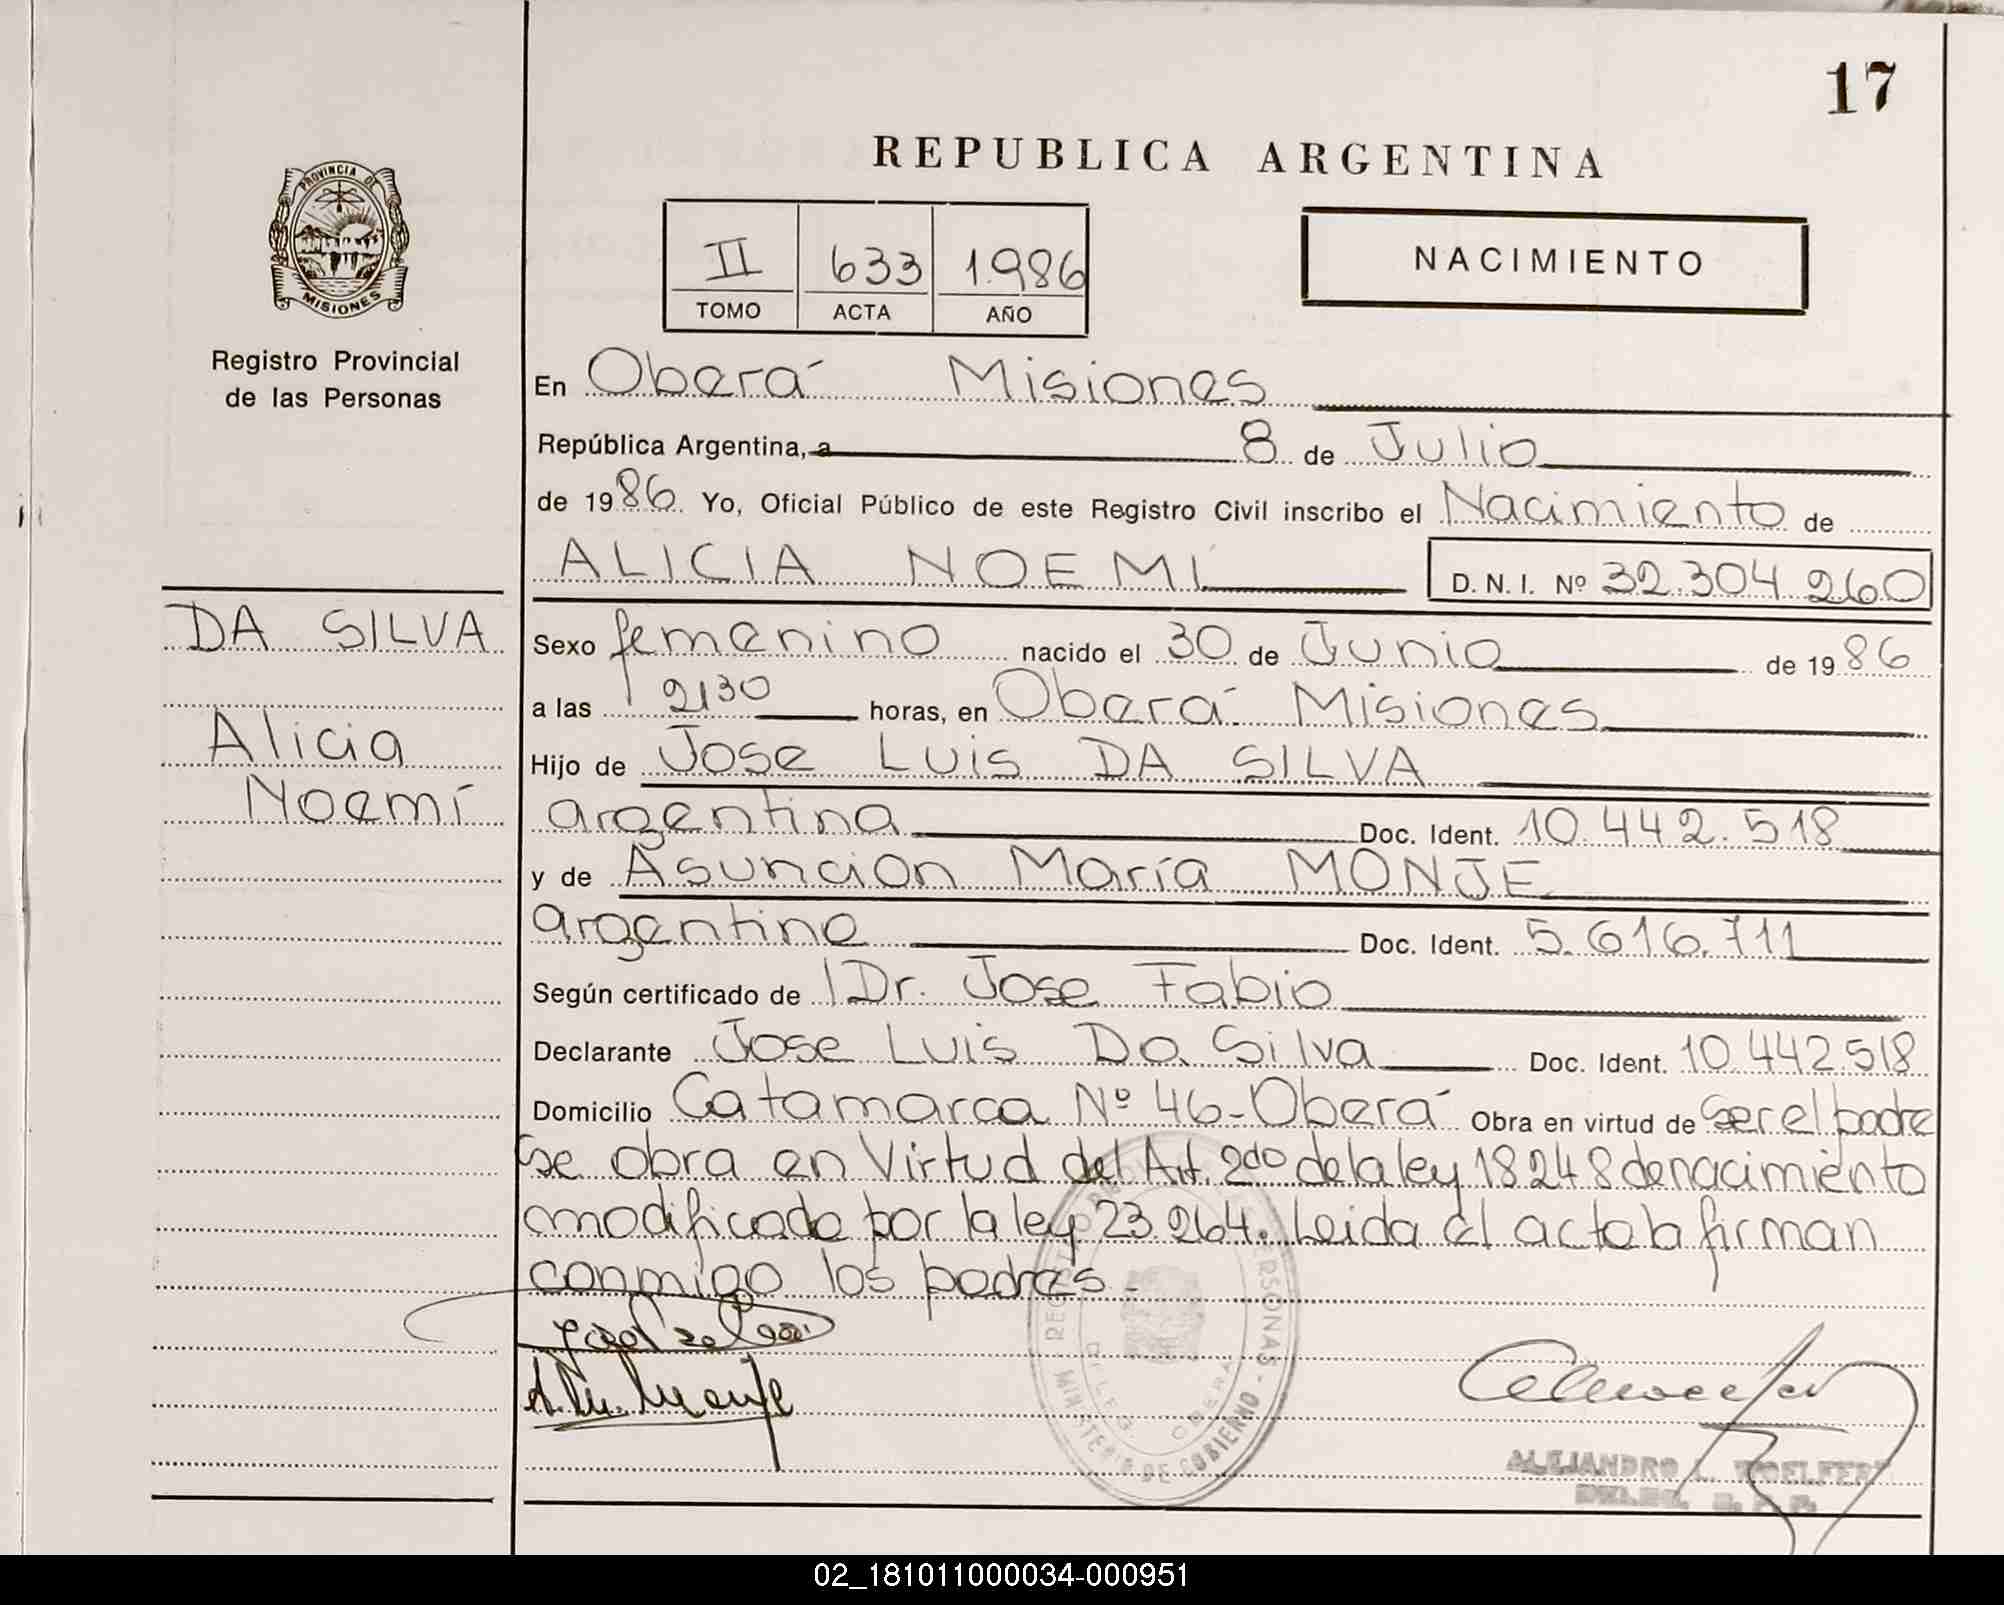 17
REPUBLICA ARGENTINA
PROVINCIA DE
MISIONES
Registro Provincial
de las Personas
II 633 1.986
TOMO ACTA AÑO
NACIMIENTO
En Oberá Misiones
República Argentina, a 8 de Julio
de 1986. Yo, Oficial Público de este Registro Civil inscribo el Nacimiento de
ALICIA NOEMÍ D. N. I. Nº 32.304.260
DA SILVA
Alicia
Noemí
Sexo femenino nacido el 30 de Junio de 1986
a las 2130 horas, en Oberá Misiones
Hijo de Jose Luis DA SILVA
argentina Doc. Ident. 10.442.518
y de Asuncion María MONJE
argentina Doc. Ident. 5.616.711
Según certificado de Dr. Jose Fabio
Declarante Jose Luis Da Silva Doc. Ident. 10.442.518
Domicilio Catamarca Nº 46-Oberá Obra en virtud de ser el padre
se obra en Virtud del Art. 2do de la ley 18248 de nacimiento
modificado por la ley 23.264. Leida el acta la firman
conmigo los padres.-
A. M. Monje
MINISTERIO DE GOBIERNO - PERSONAS
OBERA
ALEJANDRO L. WOELFERT
02_181011000034-000951